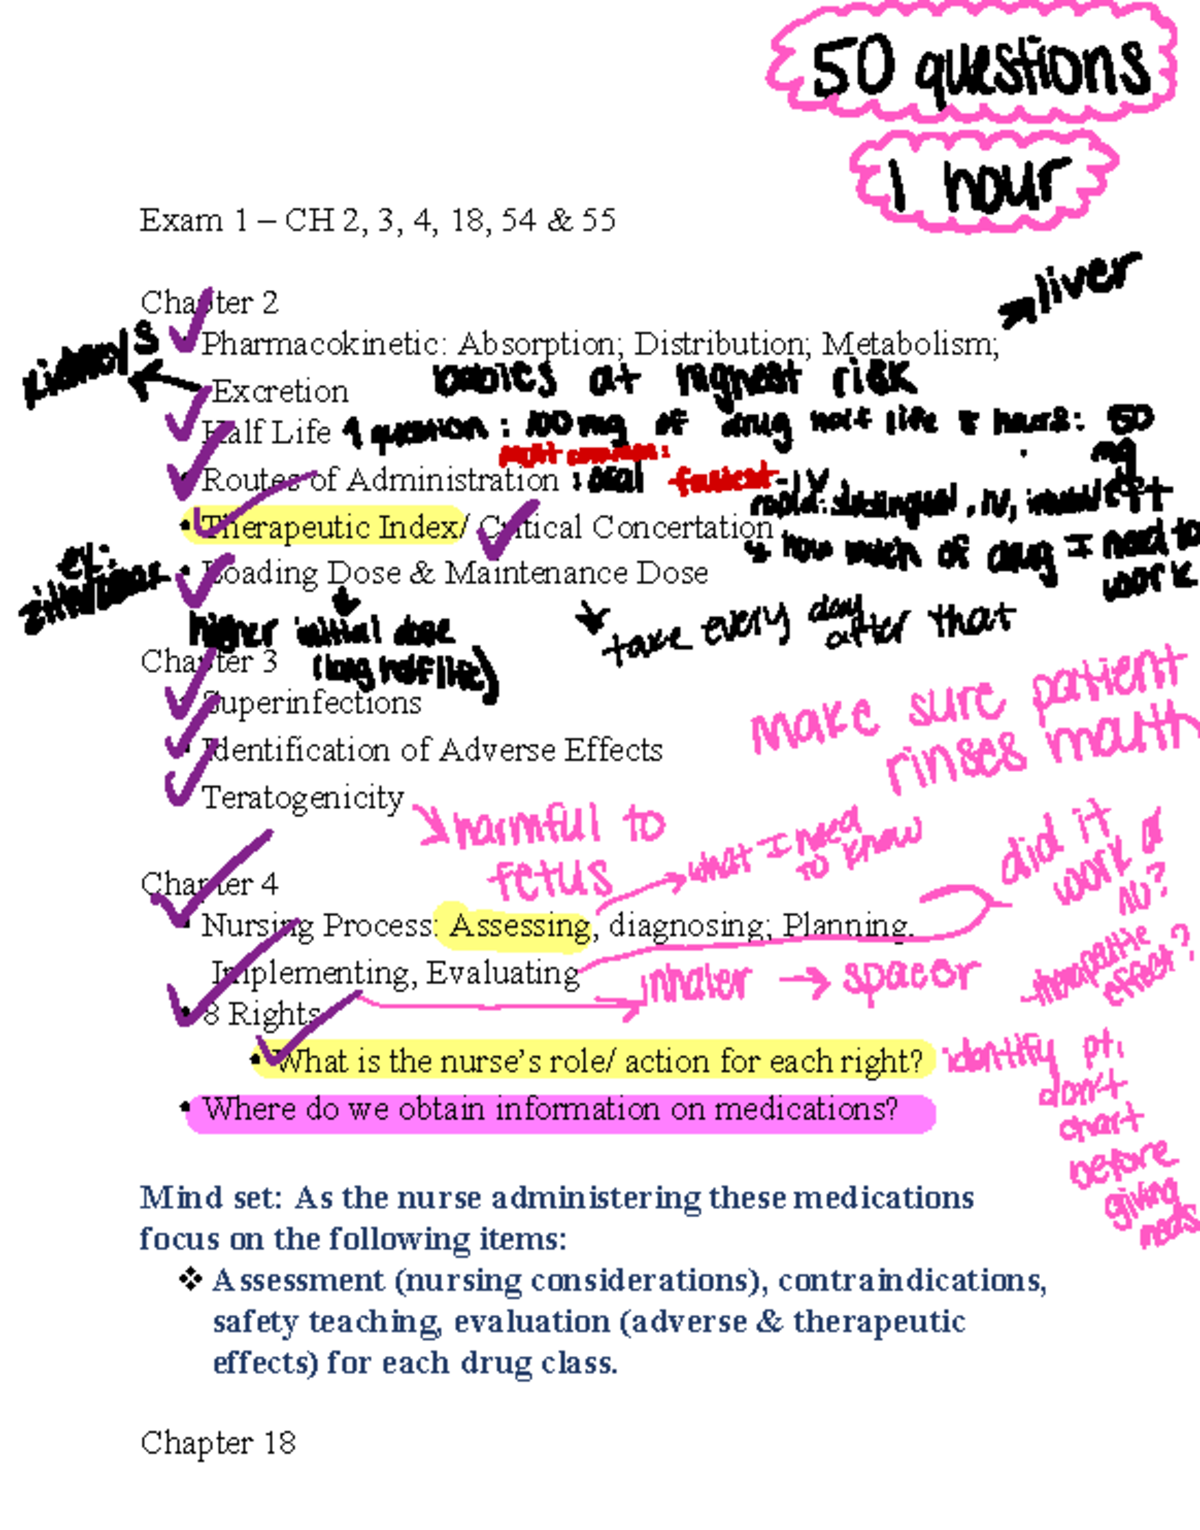 50 questions
1 hour
Exam 1 – CH 2, 3, 4, 18, 54 & 55
liver
Chapter 2
• Pharmacokinetic: Absorption; Distribution; Metabolism;
Excretion
babies at highest risk
• Half Life 1 question : 100 mg of drug half life 8 hours: 50 mg
most common:
• Routes of Administration : oral fastest - IV
rapid: sublingual, IV,
• Therapeutic Index/ Critical Concertation
how much of drug I need to work
ex:
• Loading Dose & Maintenance Dose
higher initial dose
(long half life)
take every day after that
Chapter 3
• Superinfections
make sure patient
rinses mouth
• Identification of Adverse Effects
• Teratogenicity
harmful to
fetus
what I need
to know
did it
work or
no?
Chapter 4
• Nursing Process: Assessing, diagnosing; Planning.
Implementing, Evaluating
inhaler → spacer
- therapeutic
effect?
• 8 Rights
• What is the nurse’s role/ action for each right?
identify pt.
don't
chart
before
giving
meds
• Where do we obtain information on medications?
Mind set: As the nurse administering these medications
focus on the following items:
❖ Assessment (nursing considerations), contraindications,
safety teaching, evaluation (adverse & therapeutic
effects) for each drug class.
Chapter 18